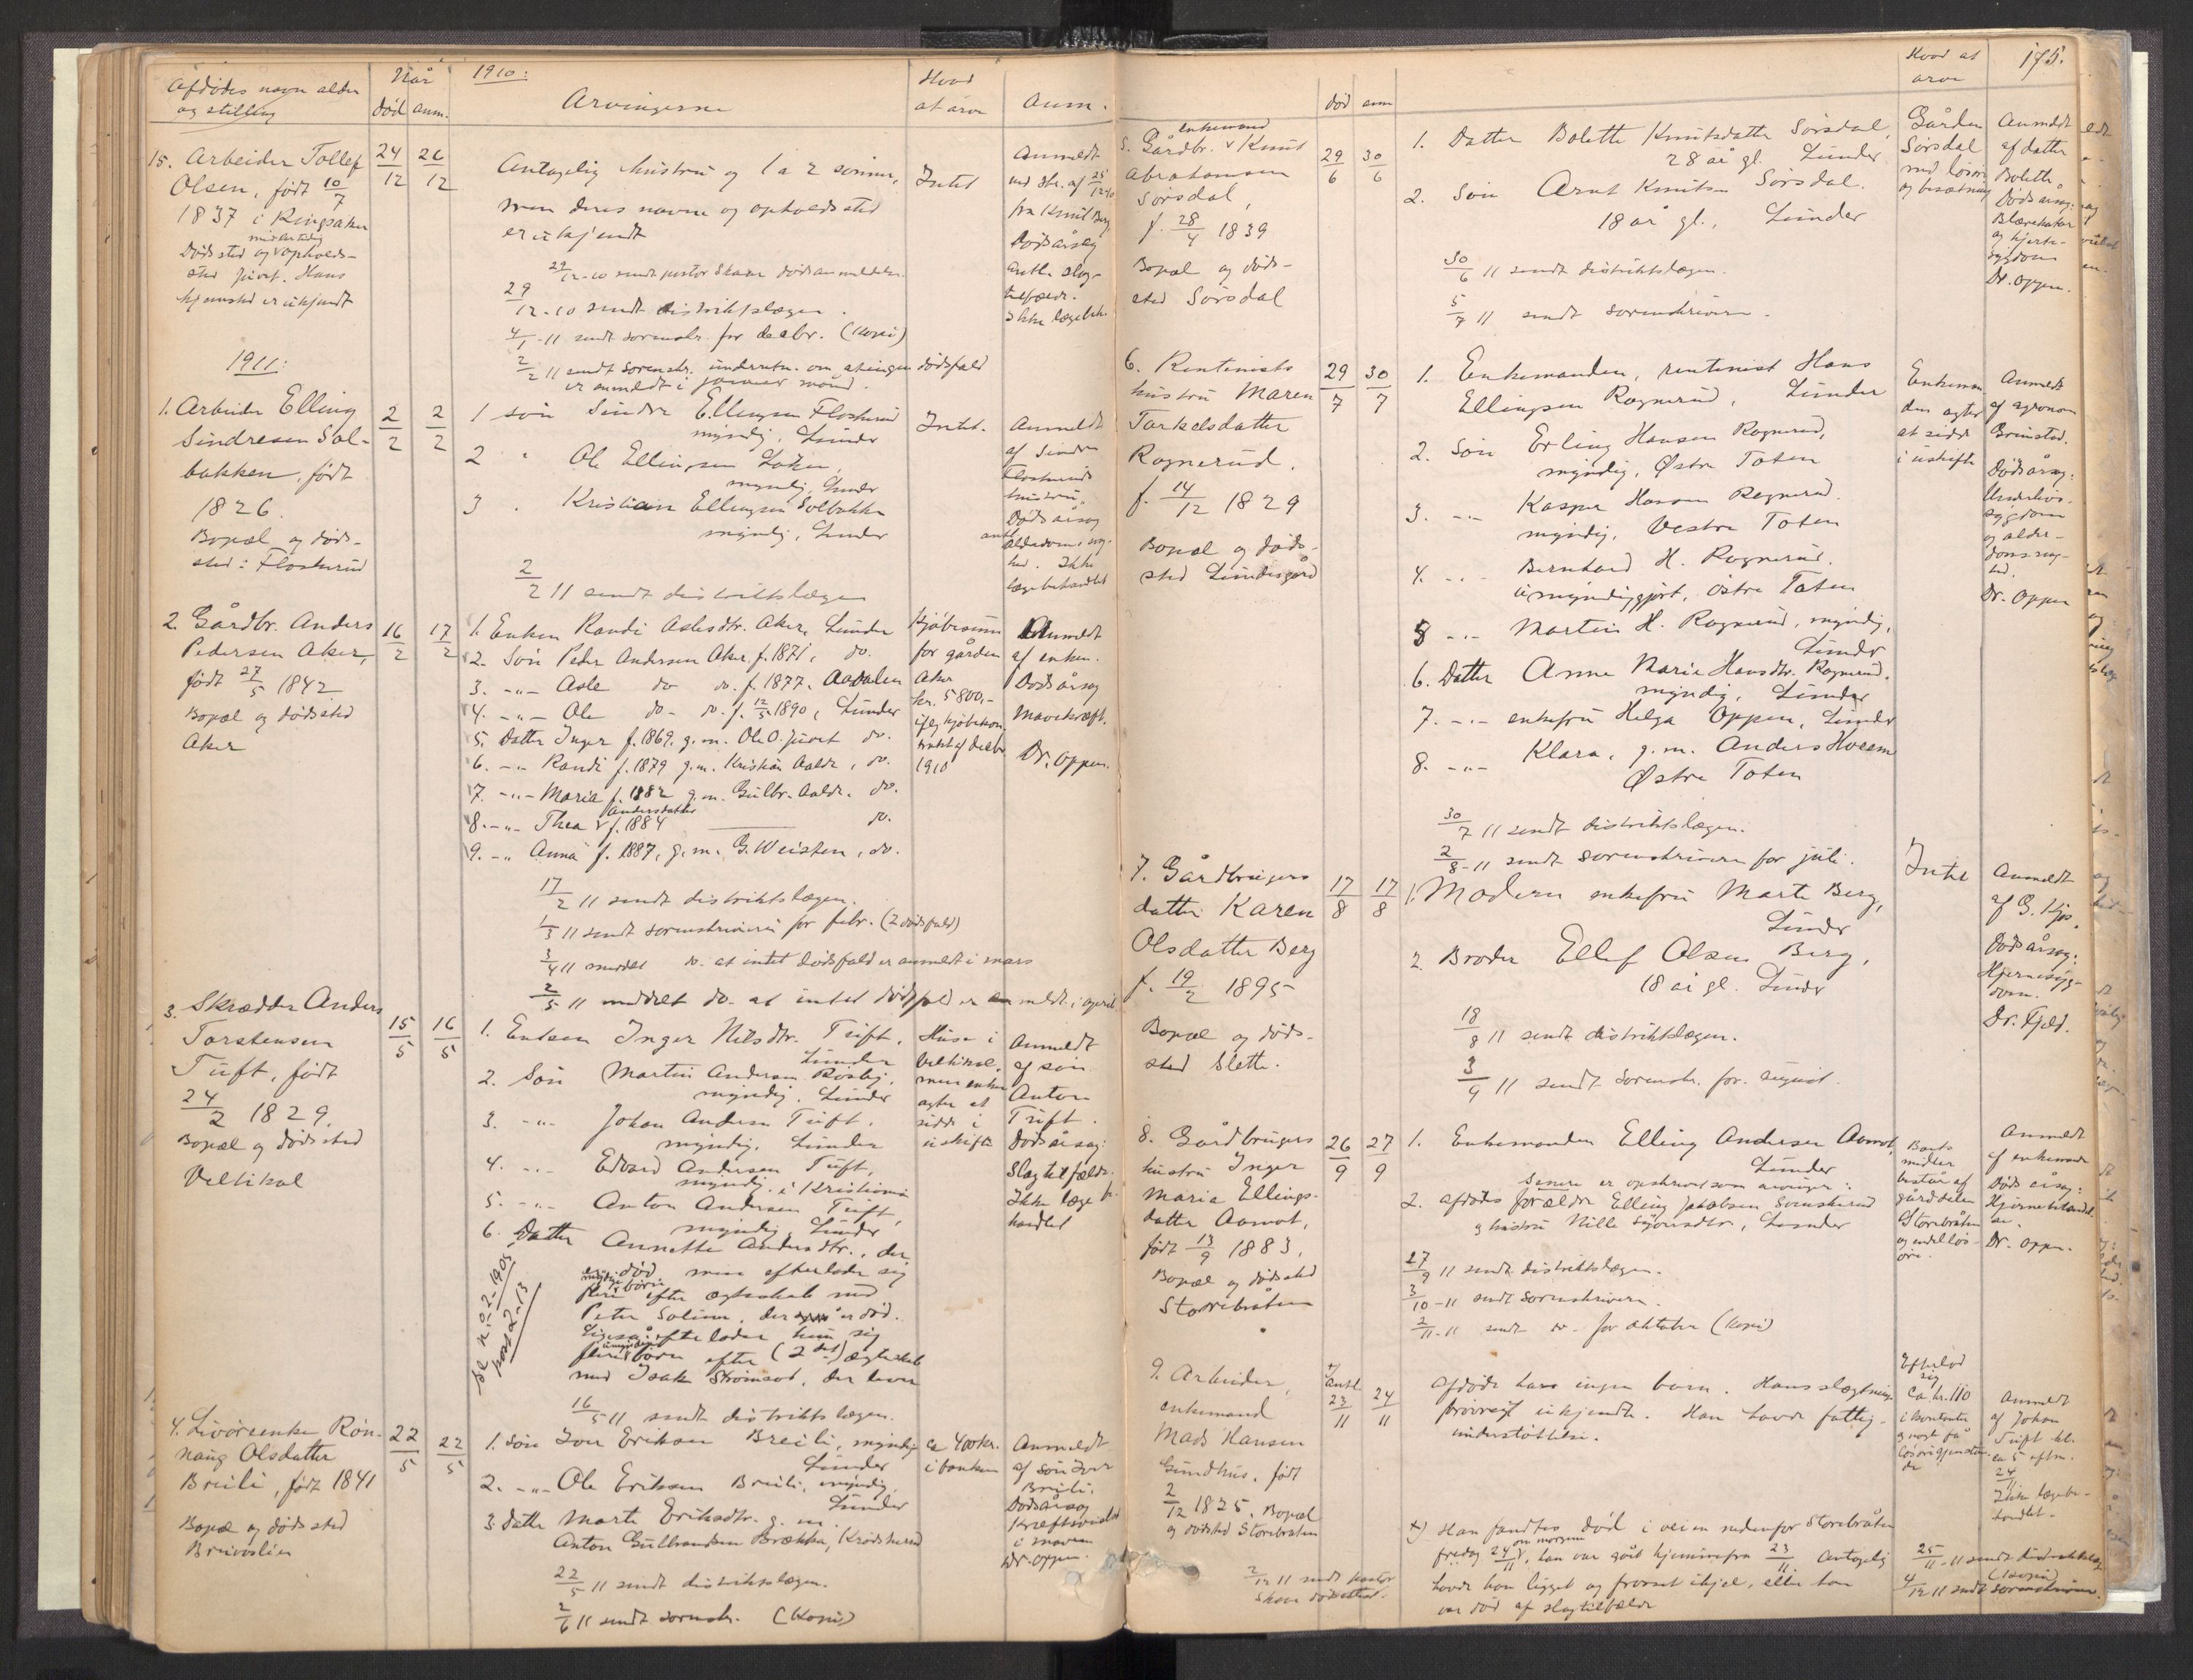 Afdødes navn alder
og stilling
Når
død anm.
1910:
Arvingerne
Hvad
at arve
Anm.
15. Arbeider Tollef
Olsen, født 10/7
1837 i Ringsaker
midlertidig
Dødssted og opholds-
sted Juvet. Hans
hjemsted er ukjendt
24/12 26/12
Antagelig hustru og 1 a 2 sønner,
men deres navne og opholdssted
er ukjendt
29/12-10 sendt pastor Skaar dødsanmeldelse.
29/12-10 sendt distriktslægen.
4/1-11 sendt sorenskr. for decbr. (Kopi)
2/2 11 sendt sorenskr. underretn. om at ingen dødsfald
er anmeldt i januar måned.
Intet
Anmeldt
ved skr. af 25/12-10
fra Knut Berg
Dødsårsag
antl. slag-
tilfælde.
Ikke lægebeh.
1911:
1. Arbeider Elling
Sindresen Sol-
bakken, født
1826.
Bopæl og døds-
sted: Floskerud
2/2 2/2
1 søn Sindre Ellingsen Floskerud
myndig, Lunder
2 " Ole Ellingsen Løken,
myndig, Lunder
3 " Kristian Ellingsen Solbakke
myndig, Lunder
2/2 11 sendt distriktslægen
Intet.
Anmeldt
af Sindre
Floskeruds
hustru.
Dødsårsag
antl. alderdomssvag-
hed. Ikke
lægebehandlet
2. Gårdbr. Anders
Pedersen Aker,
født 27/5 1842
Bopæl og dødssted
Aker
16/2 17/2
1. Enken Randi Aslesdtr. Aker, Lunder
2. Søn Peder Andersen Aker f. 1871, do.
3. -"- Asle do do. f. 1877. Aadalen
4. -"- Ole do- do. f. 12/5 1890, Lunder
5. Datter Inger f. 1869. g.m. Ole O. Juvet do.
6. -"- Randi f. 1879 g.m. Kristian Aalde, do.
7. -"- Maria f. 1882 g.m. Gulbr. Aalde. do.
8. -"- Thea Andersdatter f. 1884 do.
9. -"- Anna f. 1887, g.m. G. Weisten, do.
17/2 11 sendt distriktslægen.
1/3 11 sendt sorenskriveren for febr. (2 dødsfald)
3/4 11 meddelt do. at intet dødsfald er anmeldt i mars
2/5 11 meddelt do. at intet dødsfald er anmeldt i april
Kjøbesum
for gården
Aker
kr. 5800,-
ifølge kjøbekon-
trakt af decbr
1910
Anmeldt
af enken.
Dødsårsag
Mavekræft.
Dr. Oppen.
3. Skrædder Anders
Torstensen
Tuft, født
24/2 1829.
Bopæl og dødssted
Veltikol
15/5 16/5
1. Enken Inger Nilsdtr. Tuft,
Lunder
2. Søn Martin Andersen Rosby,
myndig, Lunder
3. -"- Johan Andersen Tuft,
myndig, Lunder
4. -"- Edvard Andersen Tuft,
myndig, i Kristiania
5. -"- Anton Andersen Tuft,
myndig, Lunder
6. Datter Annette Andersdtr., der
er død, men efterlader sig
myndige
flere børn efter ægteskab med
Peter Solum, der er død.
Ligeså efterlader hun sig
umyndige
flere børn efter (2det) ægteskab
med Isak Strømsod, der lever
se no 2-1905
post 2-13
16/5 11 sendt distriktslægen.
Huse i
Veltikol,
men enken
agter at
sidde i
uskifte
Anmeldt
af søn
Anton
Tuft.
Dødsårsag:
Slagtilfælde.
Ikke læge be-
handlet
4. Livøreenke Røn-
naug Olsdatter
Breili, født 1841
Bopæl og dødssted
Breivoslien
22/5 22/5
1. Søn Iver Eriksen Breili, myndig
Lunder
2. -"- Ole Eriksen Breili, myndig,
Lunder
3. Datter Marte Eriksdtr. g.m.
Anton Gulbrandsen Brække, Krødsherred
22/5 11 sendt distriktslægen.
2/6 11 sendt sorenskr. (Kopi)
ca 400 kr.
i banken
Anmeldt
af søn Iver
Breili.
Dødsårsag
Kræftsvulst
i maven
Dr. Oppen.
død anm
Hvad at
arve
175.
5. Gårdbr. enkemand Knut
Abrahamsen
Sørsdal,
f. 28/4 1839
Bopæl og døds-
sted Sørsdal
29/6 30/6
1. Datter Bolette Knutsdatter Sørsdal,
28 år gl. Lunder
2. Søn Arnt Knutsen Sørsdal.
18 år gl., Lunder
30/6 11 sendt distriktslægen.
5/7 11 sendt sorenskriveren.
Gården
Sørsdal
med løsøre
og besætning
Anmeldt
af datter
Bolette
Dødsårsag:
Blærekatar
og hjerte-
sygdom
Dr. Oppen.
6. Rentenists
hustru Maren
Torkelsdatter
Rognerud.
f. 14/12 1829
Bopæl og døds-
sted Lundesgård
29/7 30/7
1. Enkemanden, rentenist Hans
Ellingsen Rognerud, Lunder
2. Søn Erling Hansen Rognerud,
myndig, Østre Toten
3. -"- Kasper Hansen Rognerud.
myndig, Vestre Toten
4. -"- Bernhard H. Rognerud.
umyndiggjort, østre Toten
5 -"- Martin H. Rognerud, myndig,
Lunder
6. Datter Anne Marie Hansdtr. Rognerud.
myndig, Lunder
7. -"- enkefru Helga Oppen, Lunder
8. -"- Klara, g.m. Anders Hveem
Østre Toten
30/7 11 sendt distriktslægen.
2/8-11 sendt sorenskriveren for juli.
Enkeman-
den agter
at sidde
i uskifte
Anmeldt
af agronom
Grimstad.
Dødsårsag:
Underlivs-
sygdom
og alder-
domssvag-
hed.
Dr. Oppen
7. Gårdbrugers
datter Karen
Olsdatter Berg
f. 19/2 1895
Bopæl og døds-
sted Slette.
17/8 17/8
1. Modern enkefru Marte Berg,
Lunder
2. Broder Ellef Olsen Berg,
18 år gl. Lunder
18/8 11 sendt distriktslægen.
3/9 11 sendt sorenskr. for august.
Intet
Anmeldt
af G. Kjøs.
Dødsårsag:
Hjernesyg-
dom.
Dr. Fjeld.
8. Gårdbrugers
hustru Inger
Maria Ellings-
datter Aamot,
født 13/9 1883,
Bopæl og dødssted
Storebråten
26/9 27/9
1. Enkemanden Elling Andersen Aamot,
Lunder
Senere er opskrevet som arvinger:
2. afdødes forældre Elling Jakobsen Svenskerud
og hustru Nille Sjønsdtr, Lunder
27/9 11 sendt distriktslægen.
3/10-11 sendt sorenskriveren.
2/11-11 sendt do- for oktober (Kopi)
Boets
midler
består af
gårddelen
Storebråten
og endel løs-
øre.
Anmeldt
af enkemand
Dødsårsag:
Hjernebetændel-
se.
Dr. Oppen.
9. Arbeider,
enkemand
Mads Hansen
Gundhus, født
2/12 1825. Bopæl
og dødssted Storebråten
antl.
23/11 24/11
Afdøde har ingen børn. Hans slægtninge
forøvrigt ukjendte. Han havde fattig-
understøttelse.
Efterlod
sig
ca kr. 110
i kontanter
og nogle få
løsøregjenstan-
de
Anmeldt
af Johan
Tuft kl.
ca 5 eftm.
24/11
Ikke lægebe-
handlet.
x) Han fandtes død i veien nedenfor Storebråten
om morgenen
fredag 24/11, han var gået hjemmefra 23/11 Antagelig
havde han ligget og frosset ihjel, eller han
var død af slagtilfælde
2/12 11 sendt pastor
Skaar dødsattest.
25/11-11 sendt distriktslæg.
(Kopi)
4/12 11 sendt sorenskriveren.